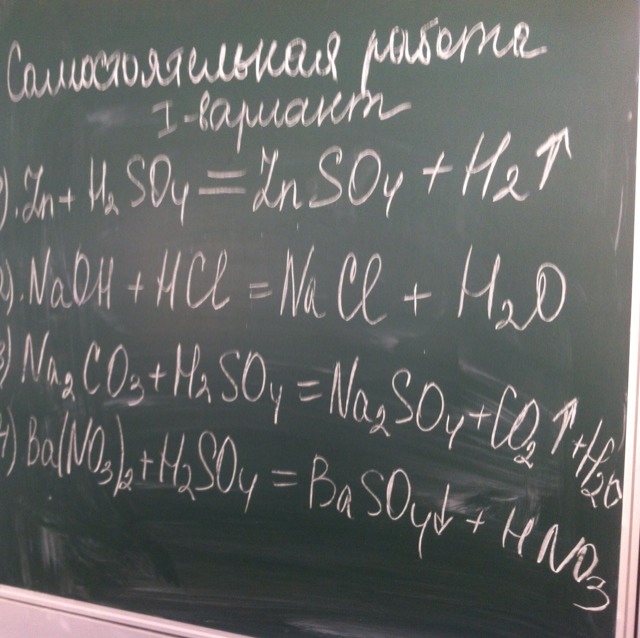 Самостоятельная работа
I-вариант
1). Zn + H₂SO₄ = ZnSO₄ + H₂↑
2). NaOH + HCl = NaCl + H₂O
3) Na₂CO₃ + H₂SO₄ = Na₂SO₄ + CO₂↑ + H₂O
4) Ba(NO₃)₂ + H₂SO₄ = BaSO₄↓ + HNO₃